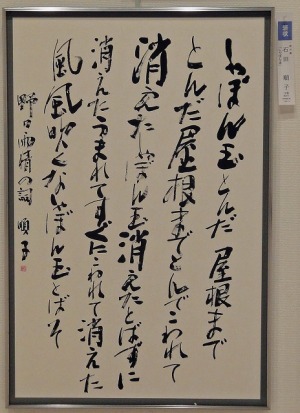 しゃぼん玉とんだ 屋根まで
とんだ屋根までとんでこわれて
消えたしゃぼん玉消えたとばずに
消えたうまれてすぐにこわれて消えた
風風吹くなしゃぼん玉とばそ
野口雨情の詞 順子
石田 順子